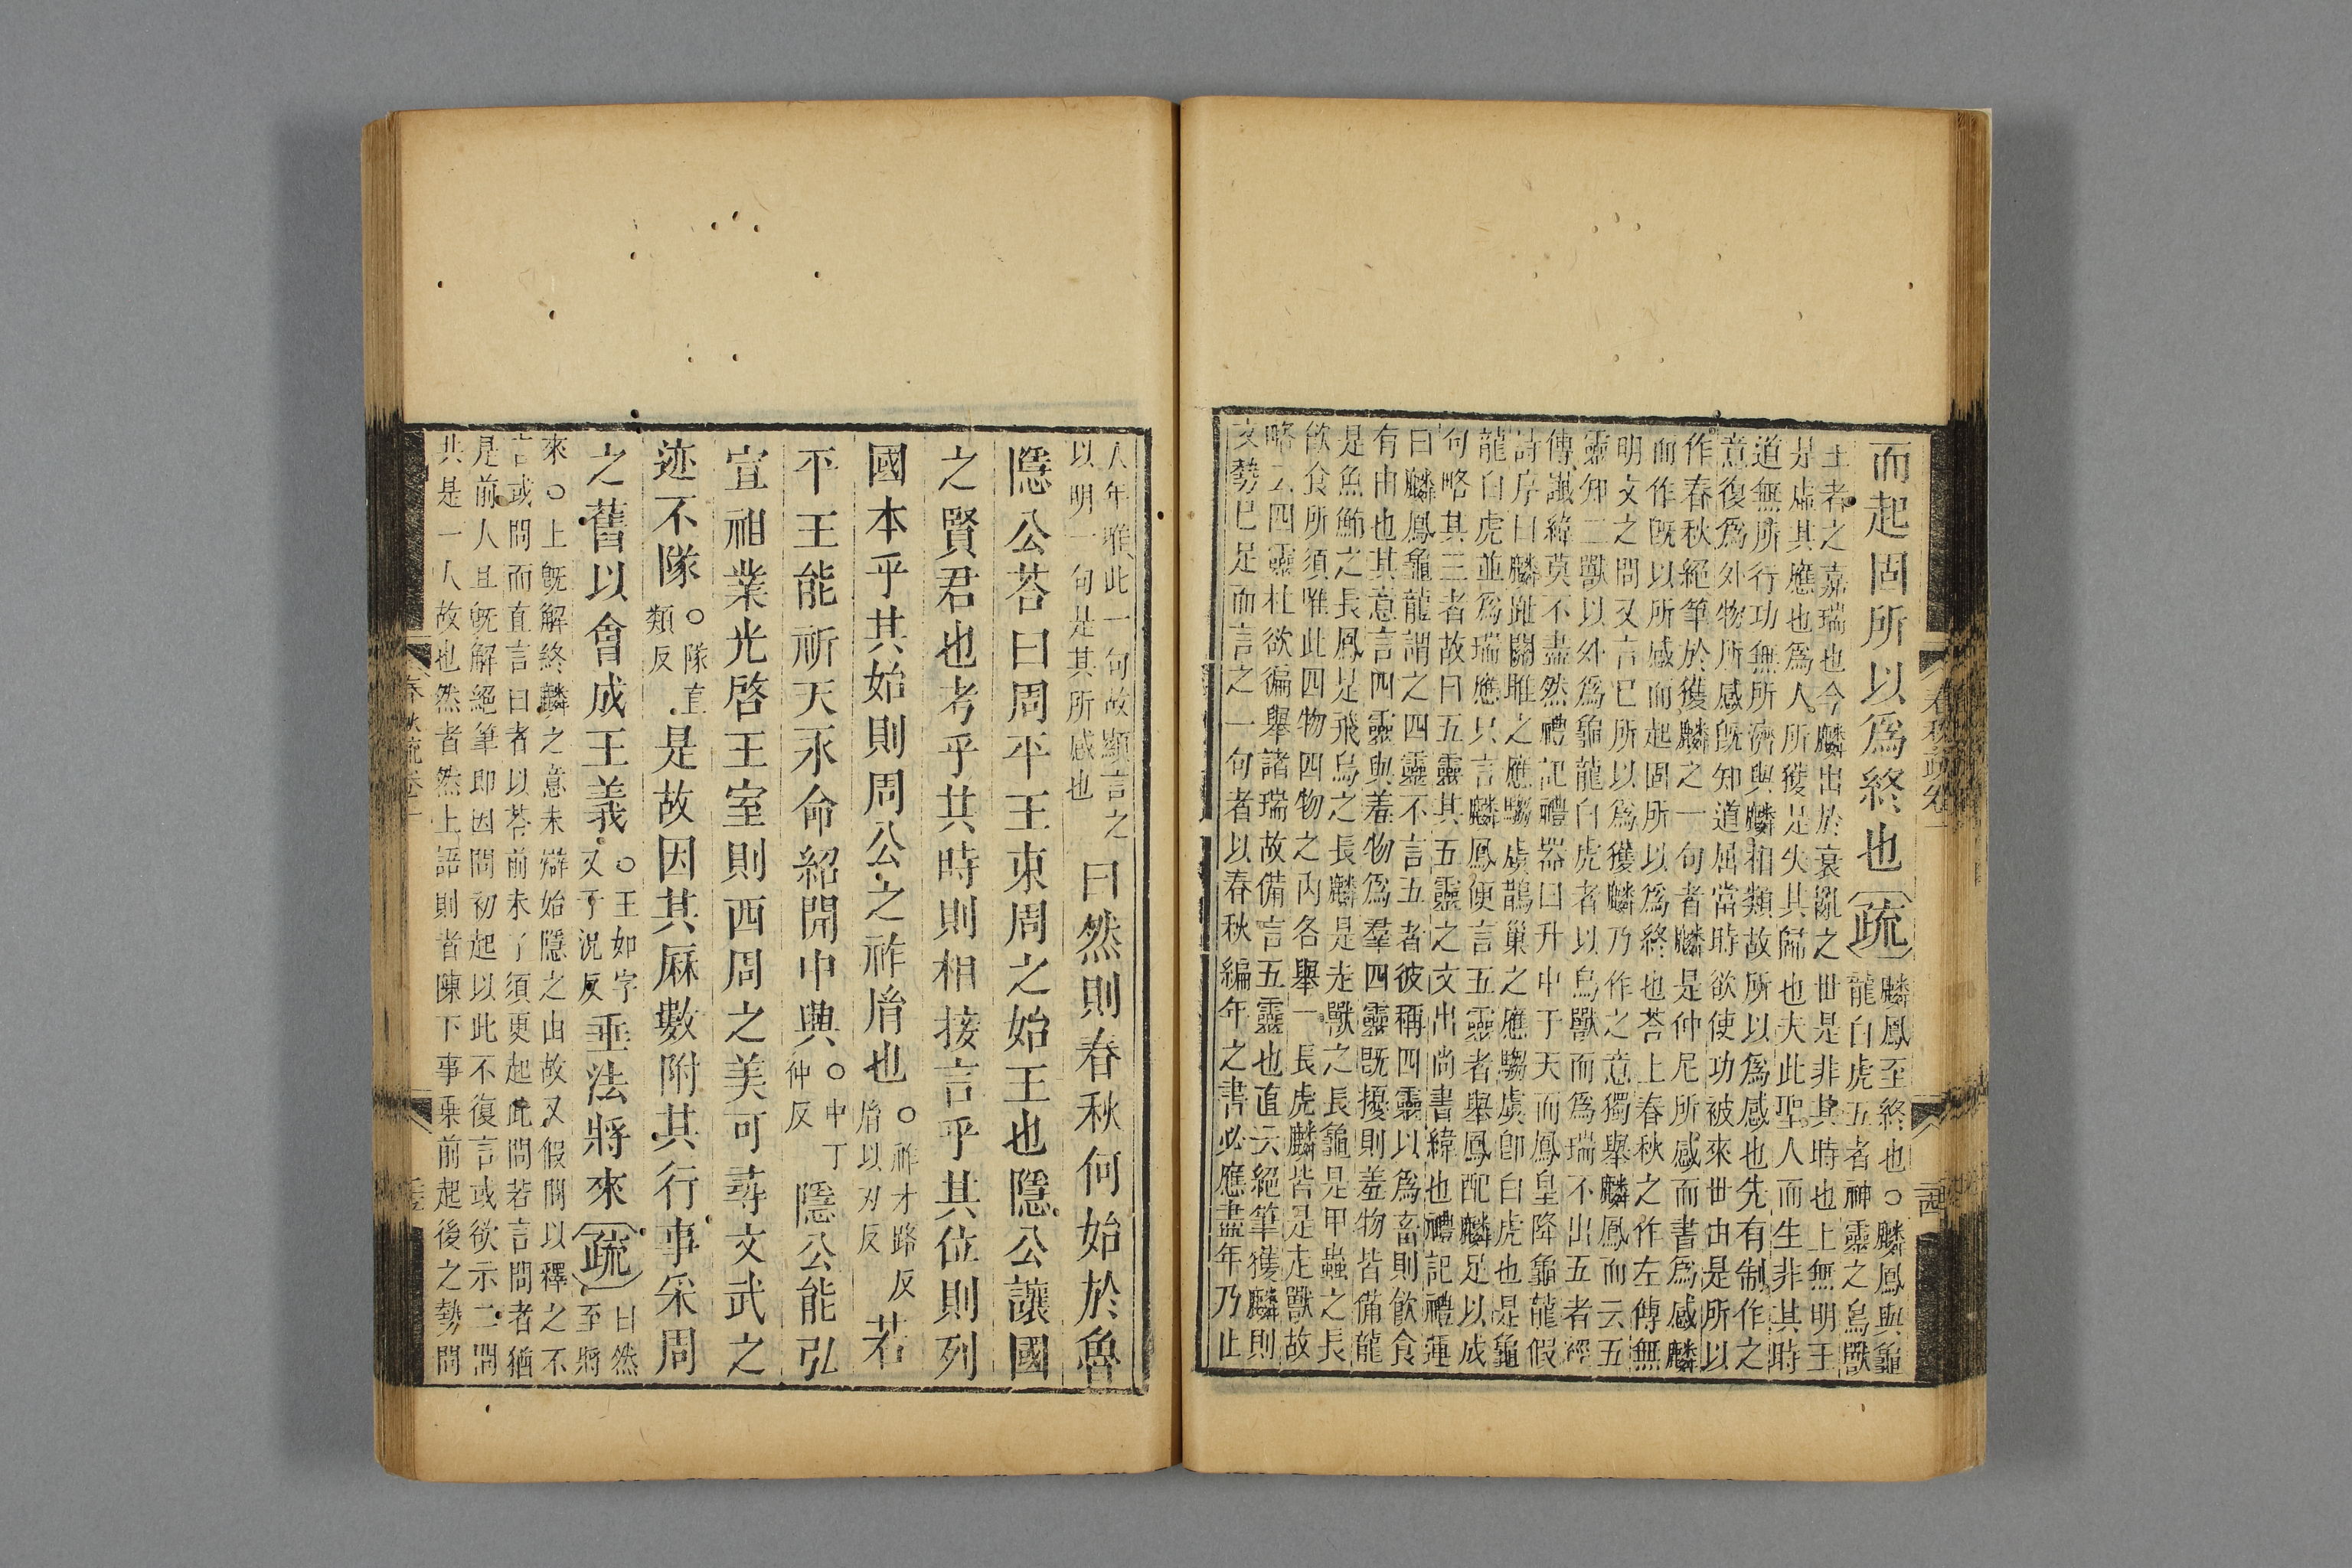 而起固所以爲終也疏
麟鳳至終也○麟鳳與龜
龍白虎五者神靈之鳥獸
王者之嘉瑞也今麟出於衰亂之世是非其時也上無明王
是虛其應也爲人所獲是失其歸也夫此聖人而生非其時
道無所行功無所濟與麟相類故所以爲感也先有制作之
意復爲外物所感旣知道屈當時欲使功被來世由是所以
作春秋絕筆於獲麟之一句者麟是仲尼所感而書爲感麟
而作旣以所感而起固所以爲終也荅上春秋之作左傳無
明文之問又言已所以爲獲麟乃作之意獨舉麟鳳而云五
靈知二獸以外爲龜龍白虎者以鳥獸而爲瑞不出五者經
傳讖緯莫不盡然禮記禮器曰升中于天而鳳皇降龜龍假
詩序曰麟趾關雎之應騶虞鵲巢之應騶虞卽白虎也是龜
龍白虎並爲瑞應只言麟鳳便言五靈者舉鳳配麟足以成
句略其三者故曰五靈其五靈之文出尚書緯也禮記禮運
曰麟鳳龜龍謂之四靈不言五者彼稱四靈以爲畜則飮食
有由也其意言四靈與羞物爲羣四靈旣擾則羞物皆備龍
是魚鮪之長鳳是飛鳥之長麟是走獸之長龜是甲蟲之長
飮食所須唯此四物四物之內各舉一長虎麟皆是走獸故
略云四靈杜欲徧舉諸瑞故備言五靈也直云絕筆獲麟則
文勢已足而言之一句者以春秋編年之書必應盡年乃止
春秋疏卷一
二四
入年唯此一句故顯言之
以明一句是其所感也
曰然則春秋何始於魯
隱公荅曰周平王東周之始王也隱公讓國
之賢君也考乎其時則相接言乎其位則列
國本乎其始則周公之祚胤也
○祚才路反
胤以刃反
若
平王能祈天永命紹開中興
○中丁
仲反
隱公能弘
宣祖業光啓王室則西周之美可尋文武之
迹不隊
○隊直
類反
是故因其厤數附其行事采周
之舊以會成王義
○王如字
又于況反
垂法將來疏
曰然
至將
來○上旣解終麟之意未辯始隱之由故又假問以釋之不
言或問而直言曰者以荅前未了須更起此問若言問者猶
是前人且旣解絕筆卽因問初起以此不復言或欲示二問
共是一人故也然者然上語則者陳下事乘前起後之勢問
春秋疏卷一